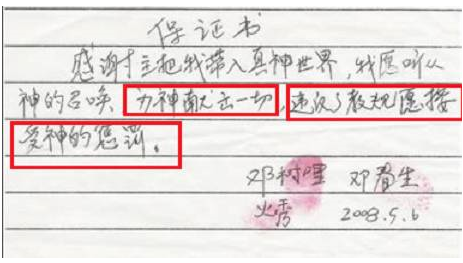 保证书
感谢主把我带入真神世界，我愿听从
神的召唤，为神献出一切，违反了教规愿接
受神的惩罚。
邓树理 邓春生
火秀 2008.5.6